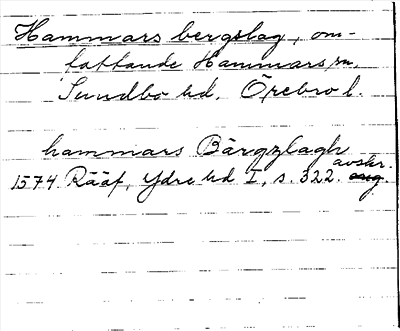 Hammars bergslag, om-
fattande Hammars sn.
Sundbo hd. Örebro l.
hammars Bärgzlagh
1574. Rääf, Ydre hd I, s. 322. avskr.